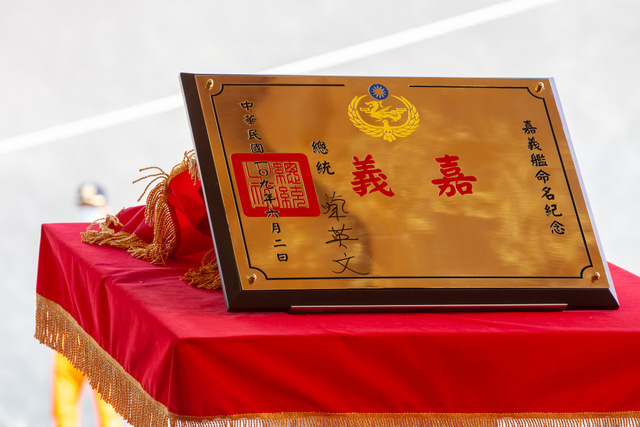 嘉義艦命名紀念
嘉義
總統
蔡英文
中華民國一〇九年六月二日